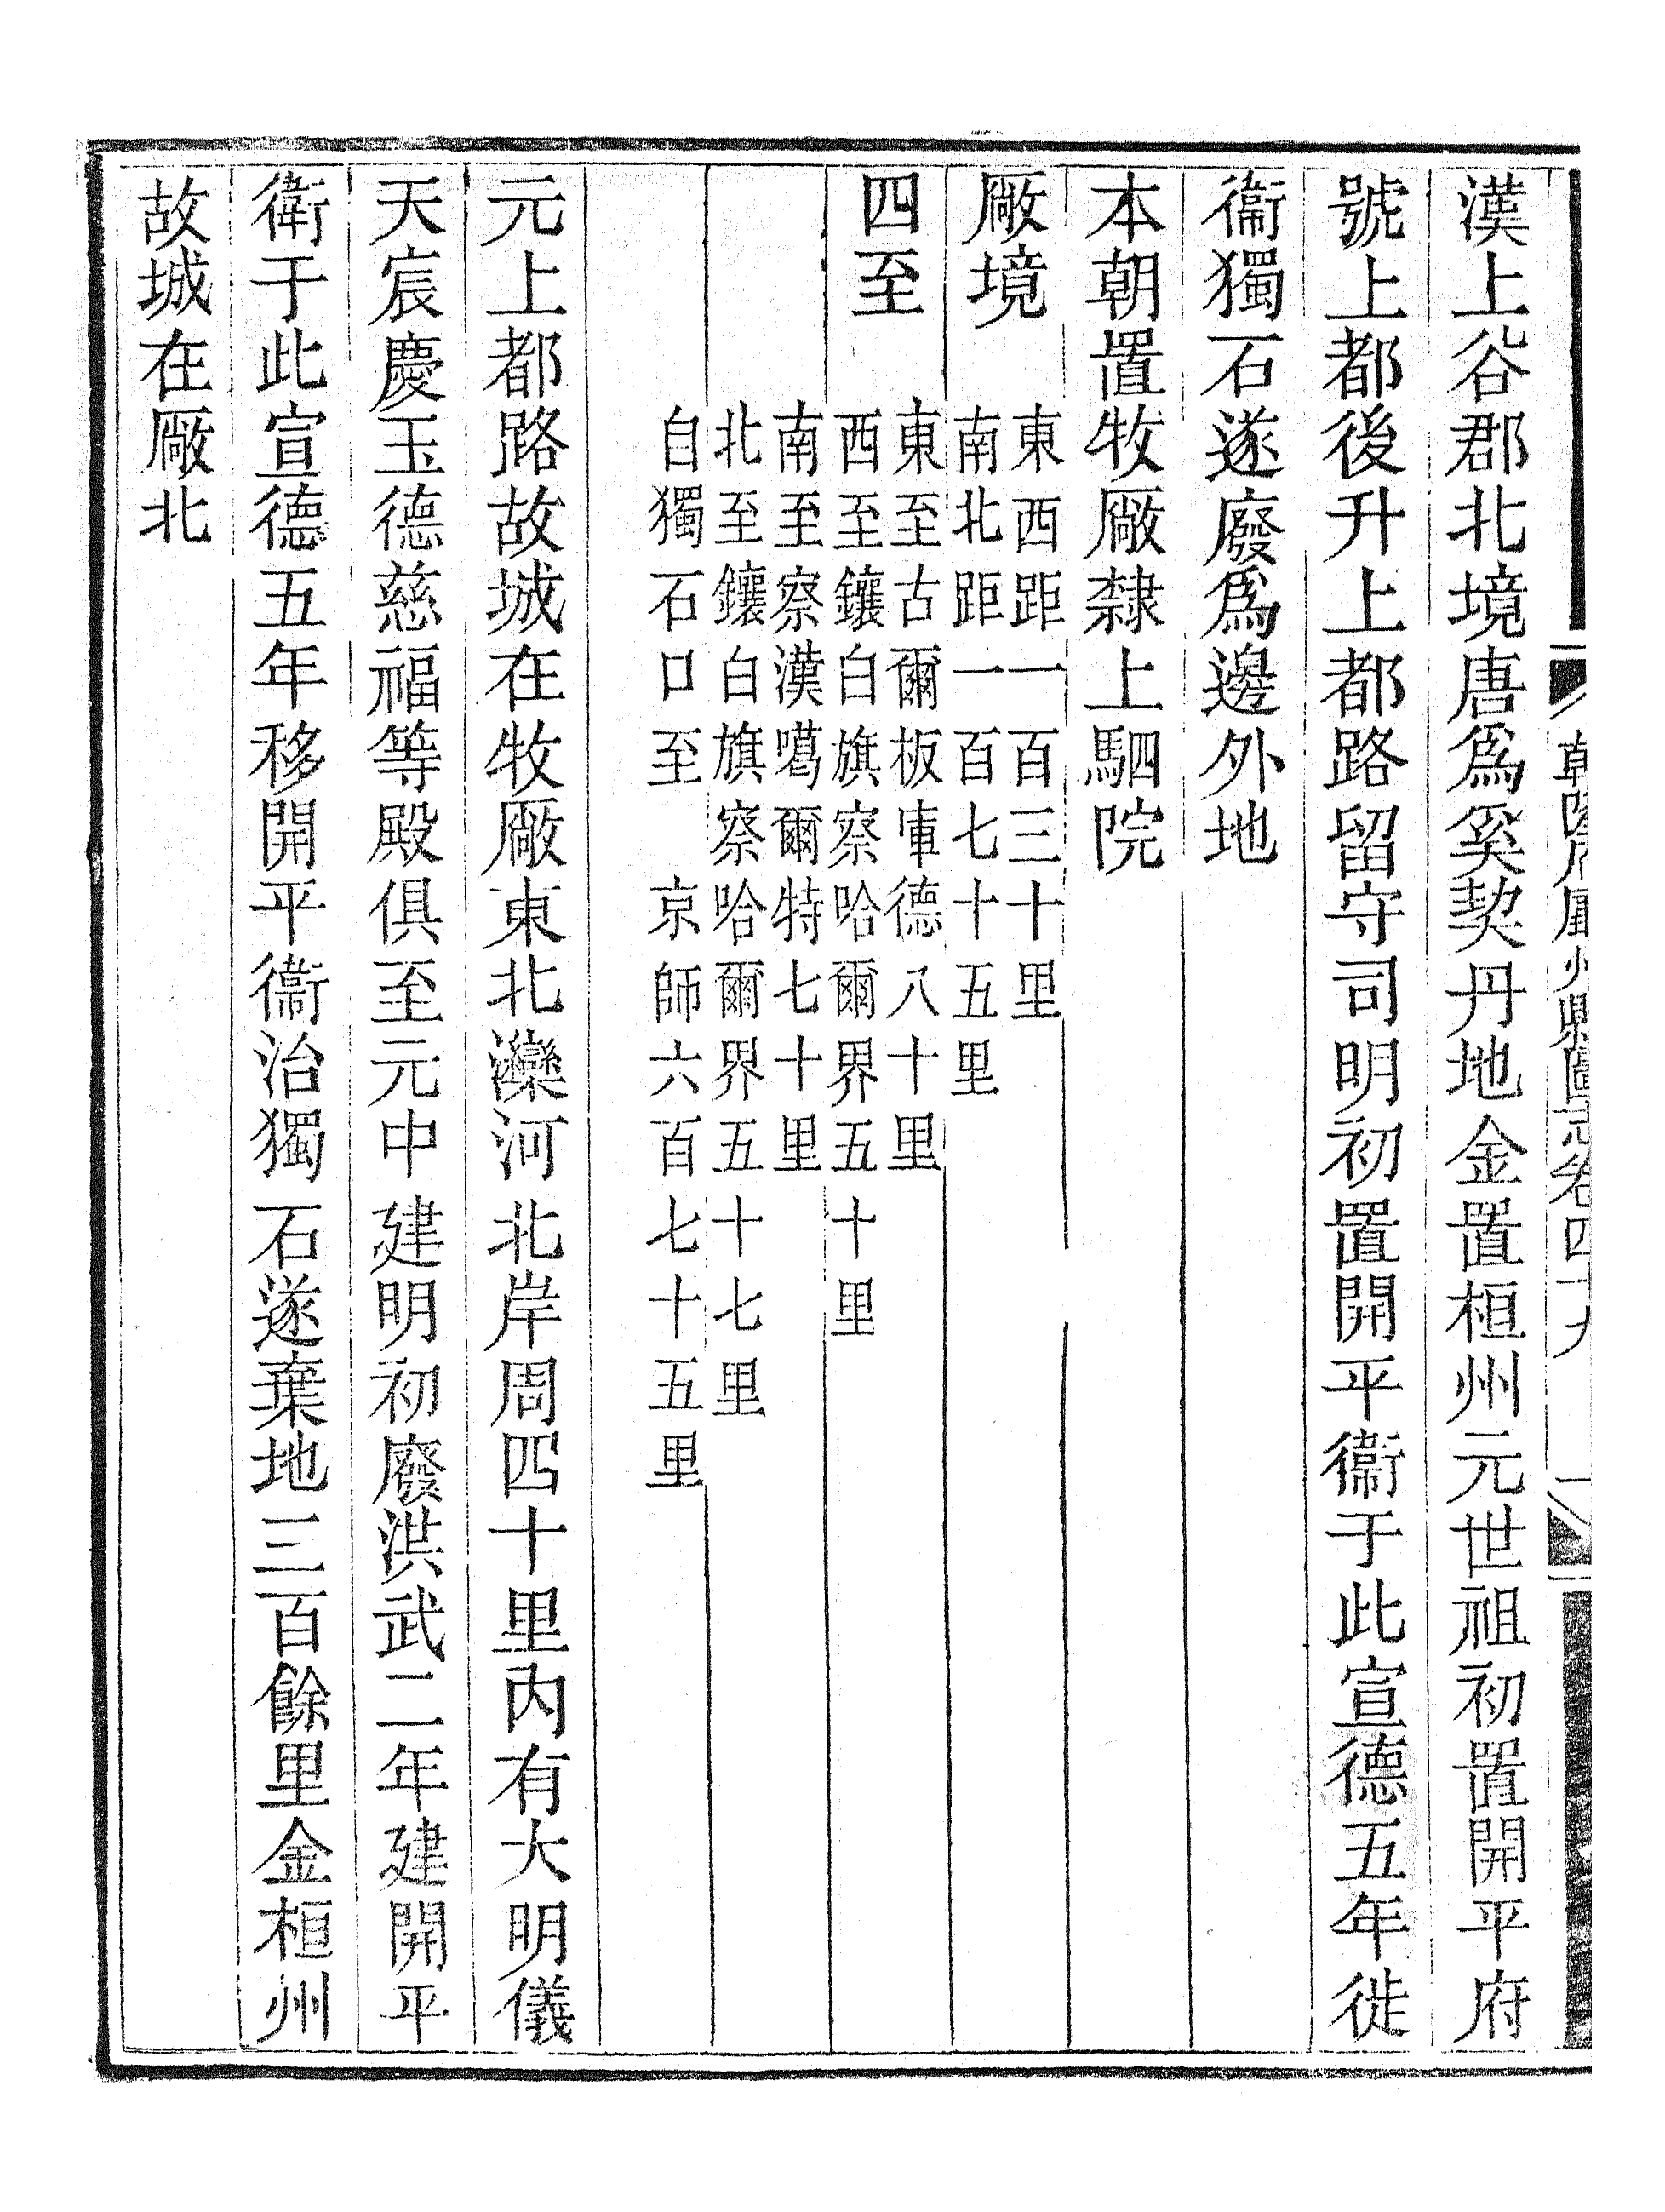 乾隆府廳州縣圖志卷四十九 一
漢上谷郡北境唐爲奚契丹地金置桓州元世祖初置開平府
號上都後升上都路留守司明初置開平衞于此宣德五年徙
衞獨石遂廢爲邊外地
本朝置牧厰隸上駟院
厰境 東西距一百三十里
南北距一百七十五里
四至 東至古爾板庫德八十里
西至鑲白旗察哈爾界五十里
南至察漢噶爾特七十里
北至鑲白旗察哈爾界五十七里
自獨石口至 京師六百七十五里
元上都路故城在牧厰東北灤河北岸周四十里內有大明儀
天宸慶玉德慈福等殿俱至元中建明初廢洪武二年建開平
衛于此宣德五年移開平衞治獨石遂棄地三百餘里金桓州
故城在厰北